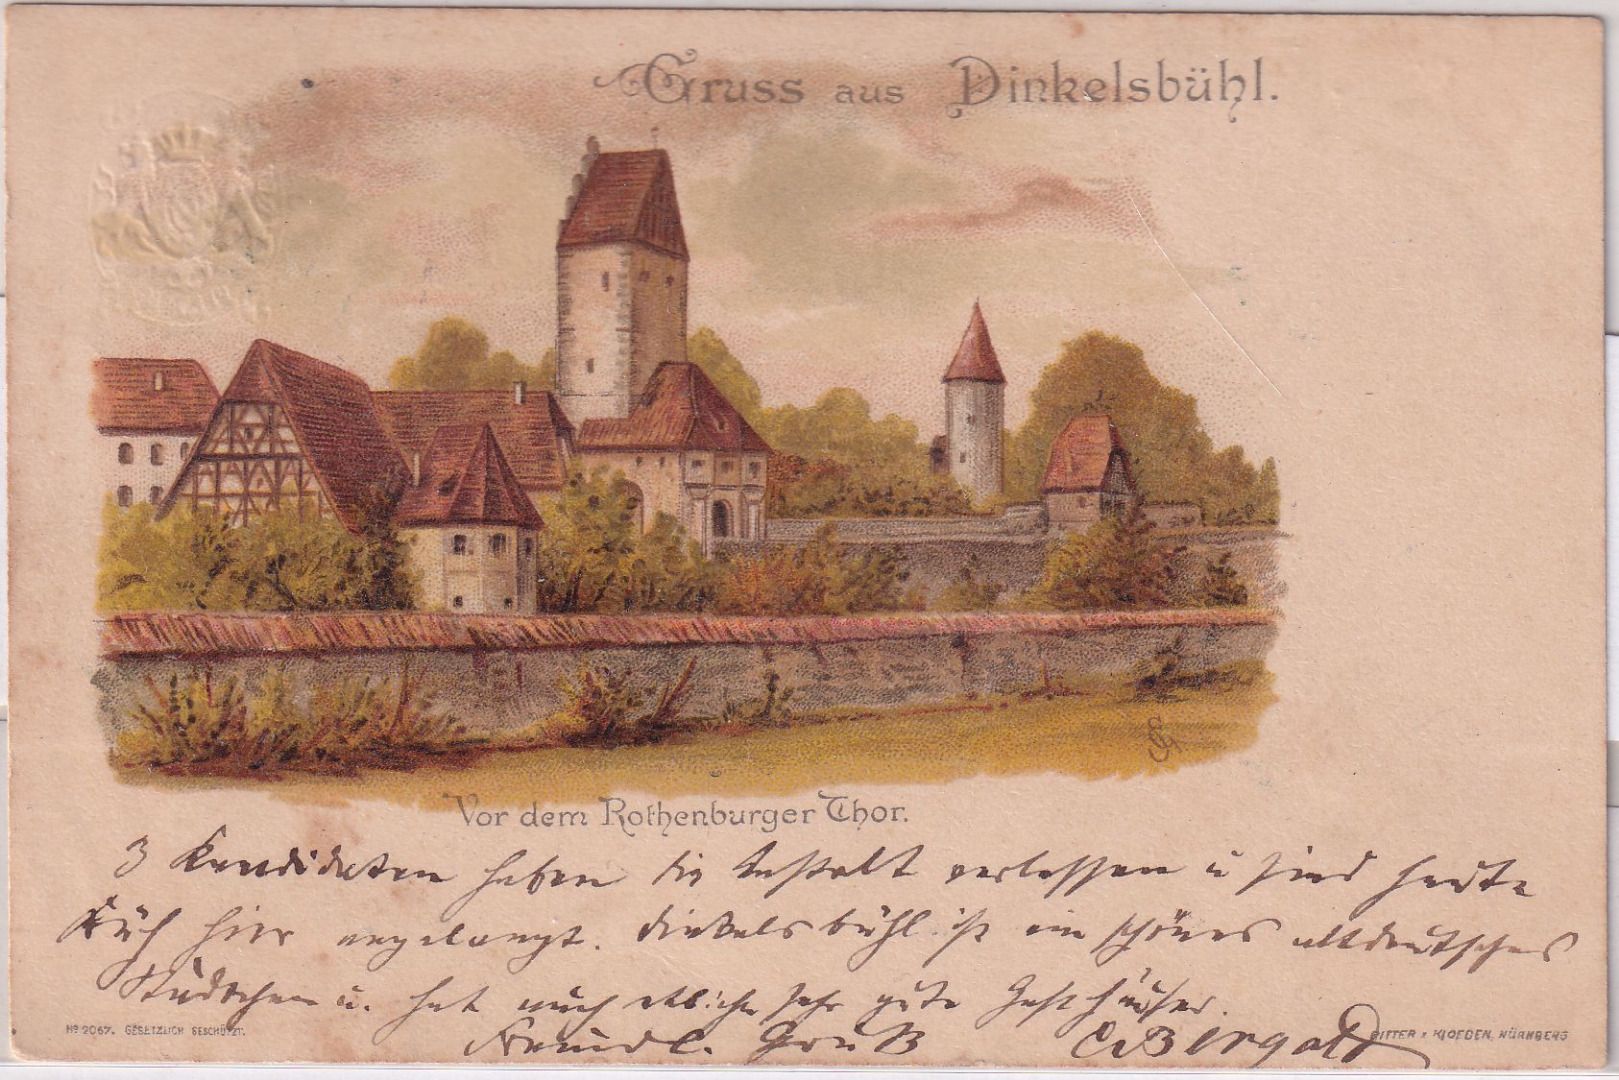 Gruss aus Dinkelsbühl.
Vor dem Rothenburger Thor.
3 Kandidaten haben die Anstalt verlassen u sind heute
Früh hier angelangt. Dinkelsbühl ist ein schönes altdeutsches
Städtchen u. hat auch etliche sehr gute Gasthäuser.
Freundl. Gruß
No 2067. GESETZLICH GESCHÜTZT.
RITTER & KLOEDEN, NÜRNBERG